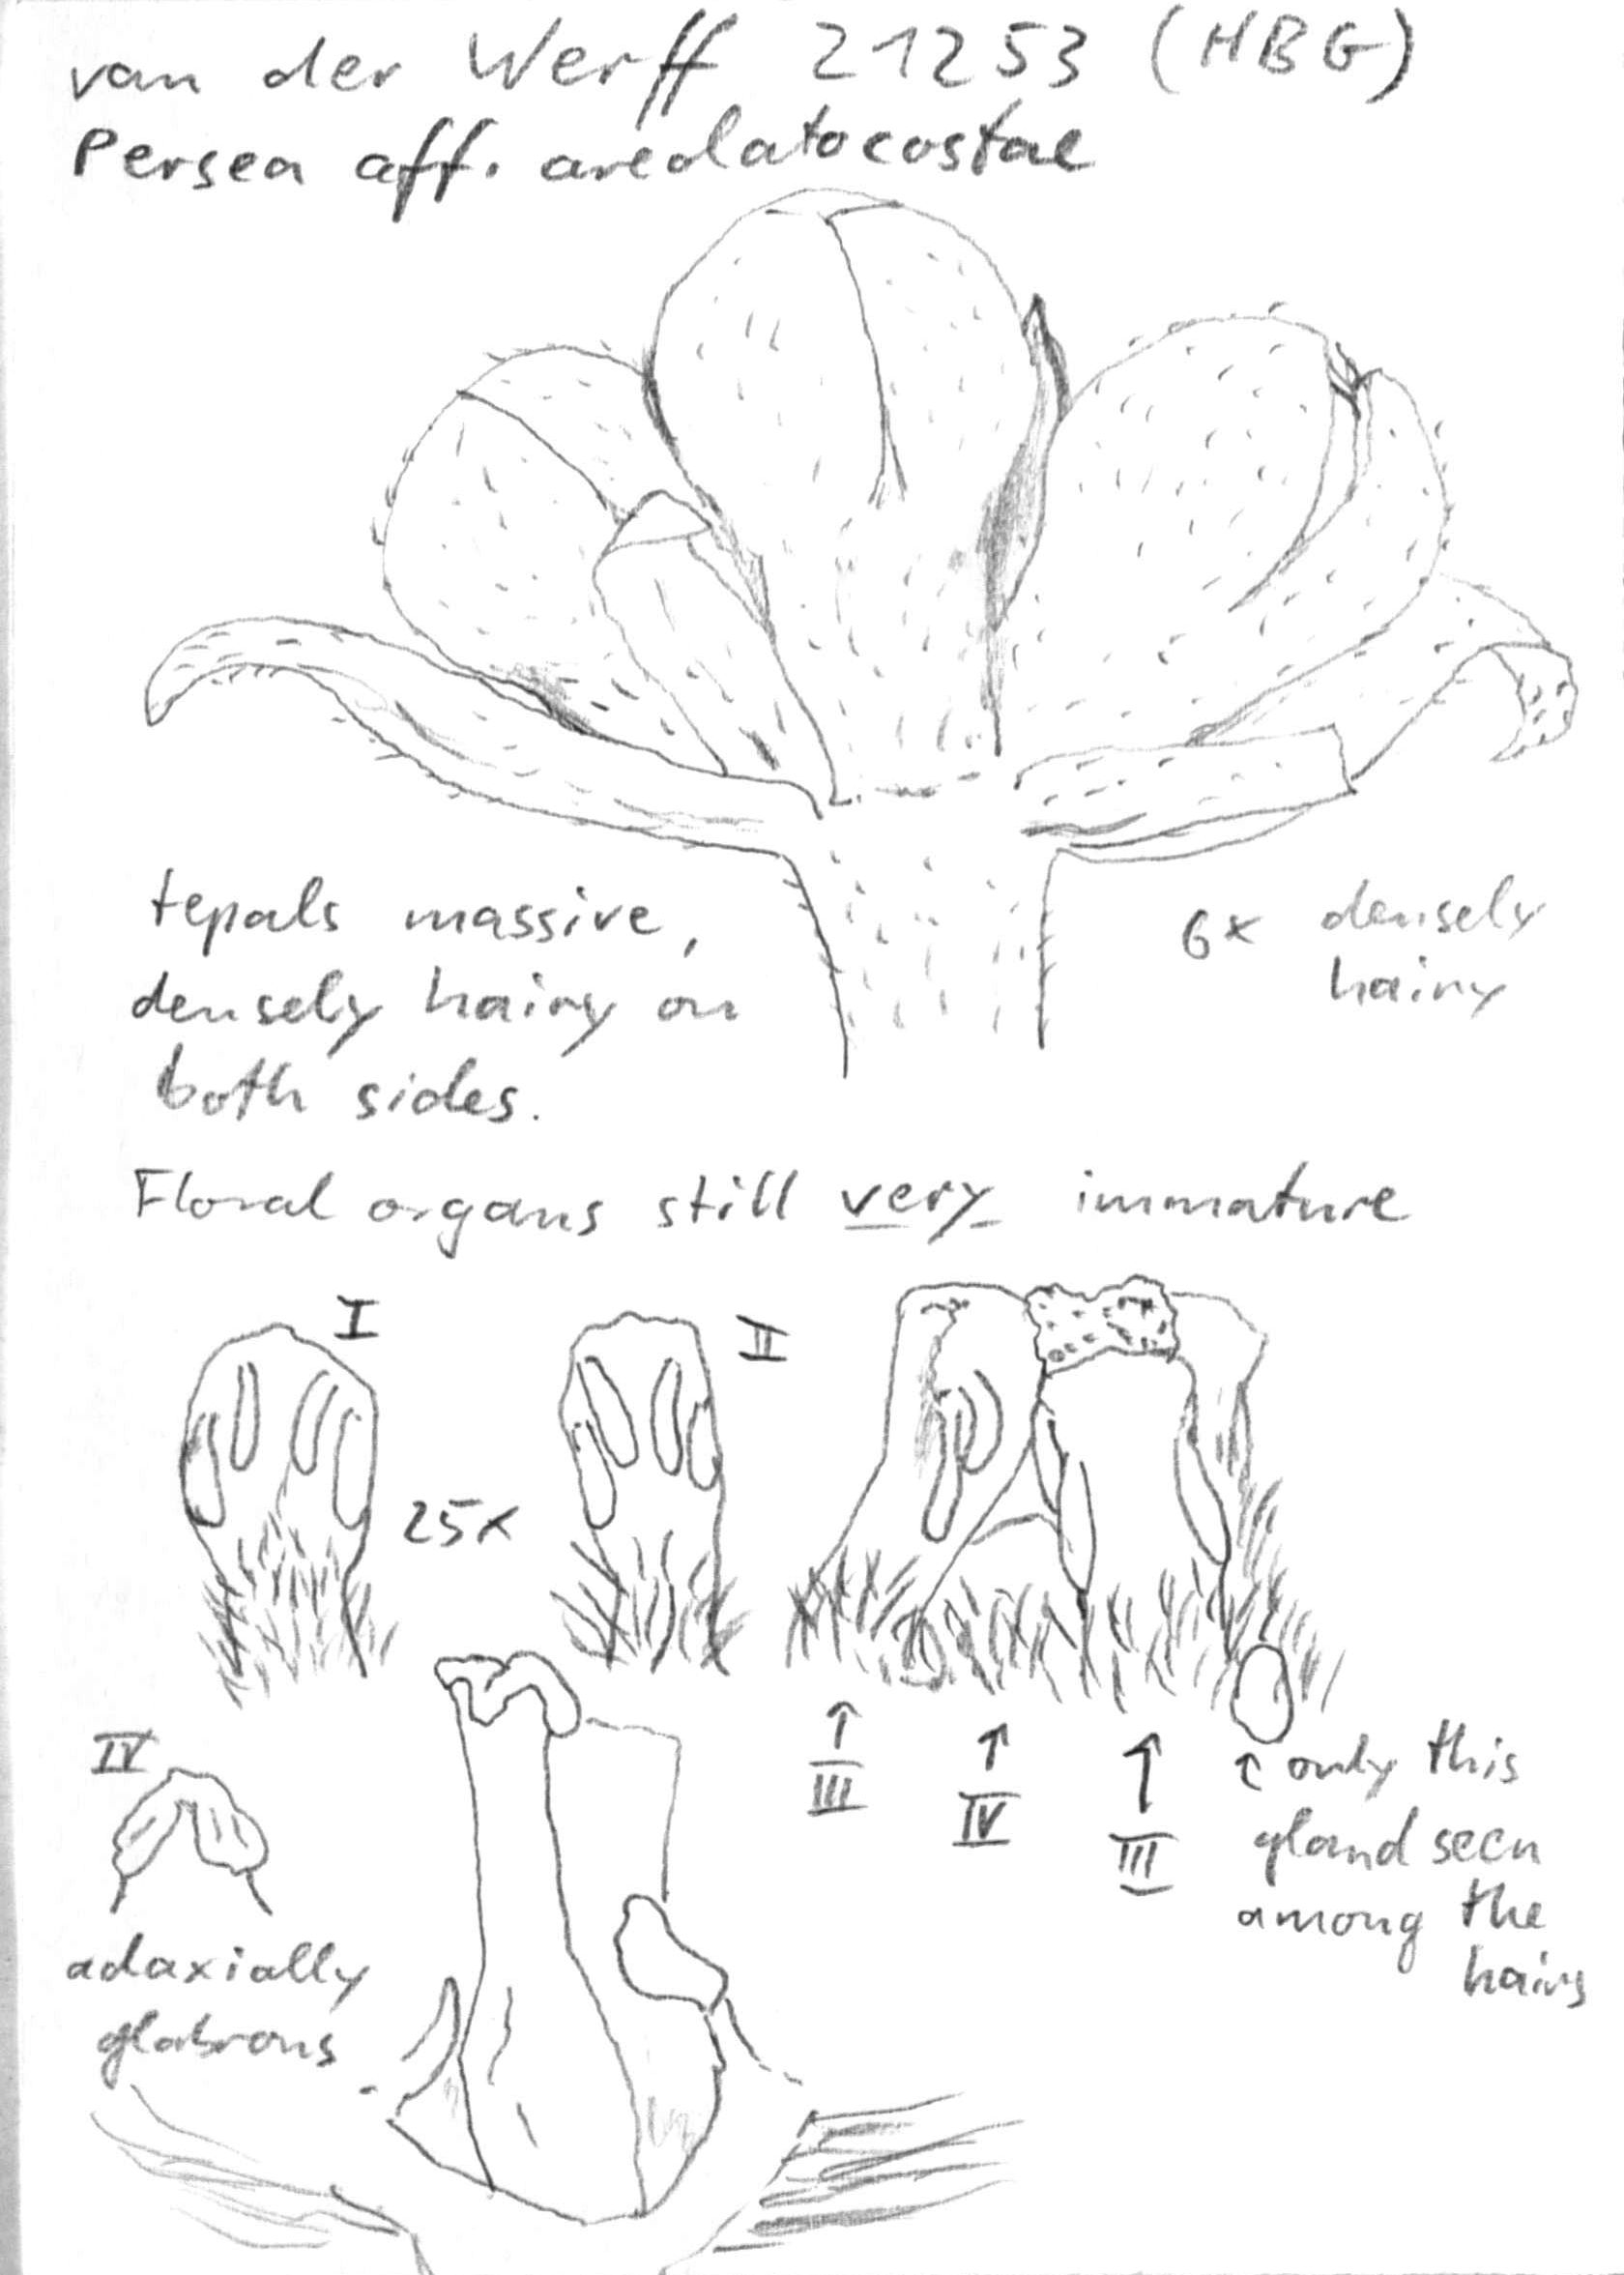 van der Werff 21253 (HBG)
Persea aff. areolatocostae
tepals massive,
densely hairy on
both sides.
6x densely
hairy
Floral organs still very immature
I
II
25x
IV
adaxially
glabrous
↑
III
↑
IV
↑
III
↑ only this
gland seen
among the
hairs